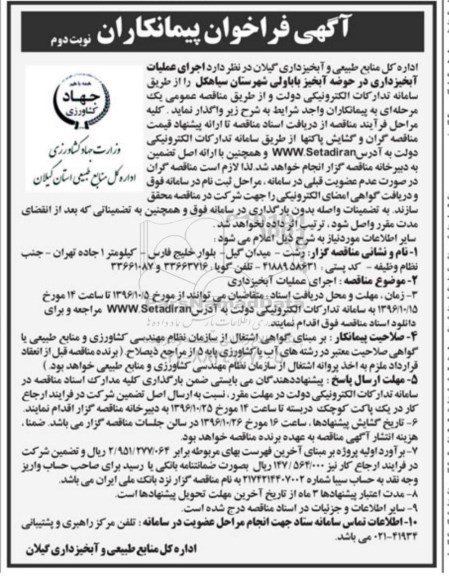 آگهی فراخوان پیمانکاران نوبت دوم
همه با هم
جهاد
کشاورزی
وزارت جهاد کشاورزی
اداره کل منابع طبیعی استان گیلان
اداره کل منابع طبیعی و آبخیزداری گیلان در نظر دارد اجرای عملیات
آبخیزداری در حوضه آبخیز باباولی شهرستان سیاهکل را از طریق
سامانه تدارکات الکترونیکی دولت و از طریق مناقصه عمومی یک
مرحله‌ای به پیمانکاران واجد شرایط به شرح زیر واگذار نماید . کلیه
مراحل فرآیند مناقصه از دریافت اسناد مناقصه تا ارائه پیشنهاد قیمت
مناقصه گران و گشایش پاکتها از طریق سامانه تدارکات الکترونیکی
دولت به آدرس WWW.Setadiran و همچنین با ارائه اصل تضمین
به دبیرخانه مناقصه گزار انجام خواهد شد. لذا لازم است مناقصه گران
در صورت عدم عضویت قبلی در سامانه ، مراحل ثبت نام در سامانه فوق
و دریافت گواهی امضای الکترونیکی را جهت شرکت در مناقصه محقق
سازند. به تضمینات واصله بدون بارگذاری در سامانه فوق و همچنین به تضمیناتی که بعد از انقضای
مدت مقرر واصل شود ، ترتیب اثر داده نخواهد شد.
سایر اطلاعات موردنیاز به شرح ذیل اعلام می شود :
۱- نام و نشانی مناقصه گزار: رشت - میدان گیل- بلوار خلیج فارس - کیلومتر ۱ جاده تهران - جنب
نظام وظیفه - کد پستی : ۵۸۶۳۱ - ۴۱۸۸۹ - تلفن گویا : ۳۳۶۶۳۷۱۶ و ۸۷-۳۳۶۶۱۰
۲- موضوع مناقصه : اجرای عملیات آبخیزداری
۳- زمان ، مهلت و محل دریافت اسناد: متقاضیان می توانند از مورخ ۱۳۹۶/۱۰/۵ تا ساعت ۱۴ مورخ
۱۳۹۶/۱۰/۱۵ به سامانه تدارکات الکترونیکی دولت به آدرس WWW.Setadiran مراجعه و برای
دانلود اسناد مناقصه فوق اقدام نمایند.
۴- صلاحیت پیمانکار : بر مبنای گواهی اشتغال از سازمان نظام مهندسی کشاورزی و منابع طبیعی یا
گواهی صلاحیت معتبر در رشته های آب یا کشاورزی پایه ۵ از مراجع ذیصلاح ( برنده مناقصه قبل از انعقاد
قرارداد ملزم به اخذ پروانه اشتغال از سازمان نظام مهندسی کشاورزی و منابع طبیعی خواهد بود. )
۵- مهلت ارسال پاسخ : پیشنهاددهندگان می بایستی ضمن بارگذاری کلیه مدارک اسناد مناقصه در
سامانه تدارکات الکترونیکی دولت در مهلت مقرر ، نسبت به ارسال اصل تضمین شرکت در فرایند ارجاع
کار در یک پاکت کوچک دربسته تا ساعت ۱۴ مورخ ۱۳۹۶/۱۰/۲۵ به دبیرخانه مناقصه گزار اقدام نمایند.
۶- تاریخ گشایش پیشنهادها ، ساعت ۱۶ مورخ ۱۳۹۶/۱۰/۲۶ در سالن جلسات مناقصه گزار می باشد. ضمنا ،
هزینه انتشار آگهی مناقصه به عهده برنده مناقصه خواهد بود.
۷- برآورد اولیه پروژه بر مبنای آخرین فهرست بهای مربوطه برابر ۲/۹۵۱/۲۷۷/۰۶۴ ریال و تضمین شرکت
در فرایند ارجاع کار نیز ۱۴۷/۵۶۴/۰۰۰ ریال بصورت ضمانتنامه بانکی یا رسید برای صاحب حساب واریز
وجه نقد به حساب سیبا شماره ۲۱۷۴۲۱۴۴۰۷۰۰۲ به نام مناقصه گزار نزد بانک ملی ایران می باشد.
۸- مدت اعتبار پیشنهادها ۳ ماه از تاریخ آخرین مهلت تحویل پیشنهادها است.
۹- سایر اطلاعات و جزئیات در اسناد مناقصه درج شده است.
۱۰- اطلاعات تماس سامانه ستاد جهت انجام مراحل عضویت در سامانه : تلفن مرکز راهبری و پشتیبانی
۴۱۹۳۴-۰۲۱ می باشد.
اداره کل منابع طبیعی و آبخیزداری گیلان